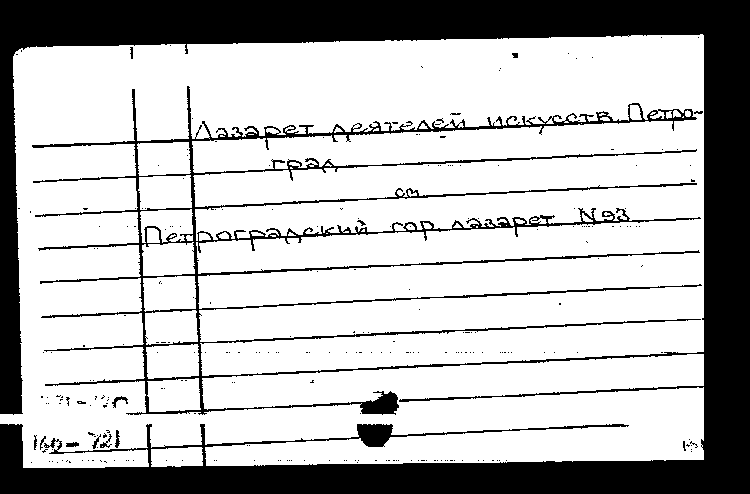 Лазарет деятелей искусств Петро-
град
см.
Петроградский гор. лазарет N 93
160-721